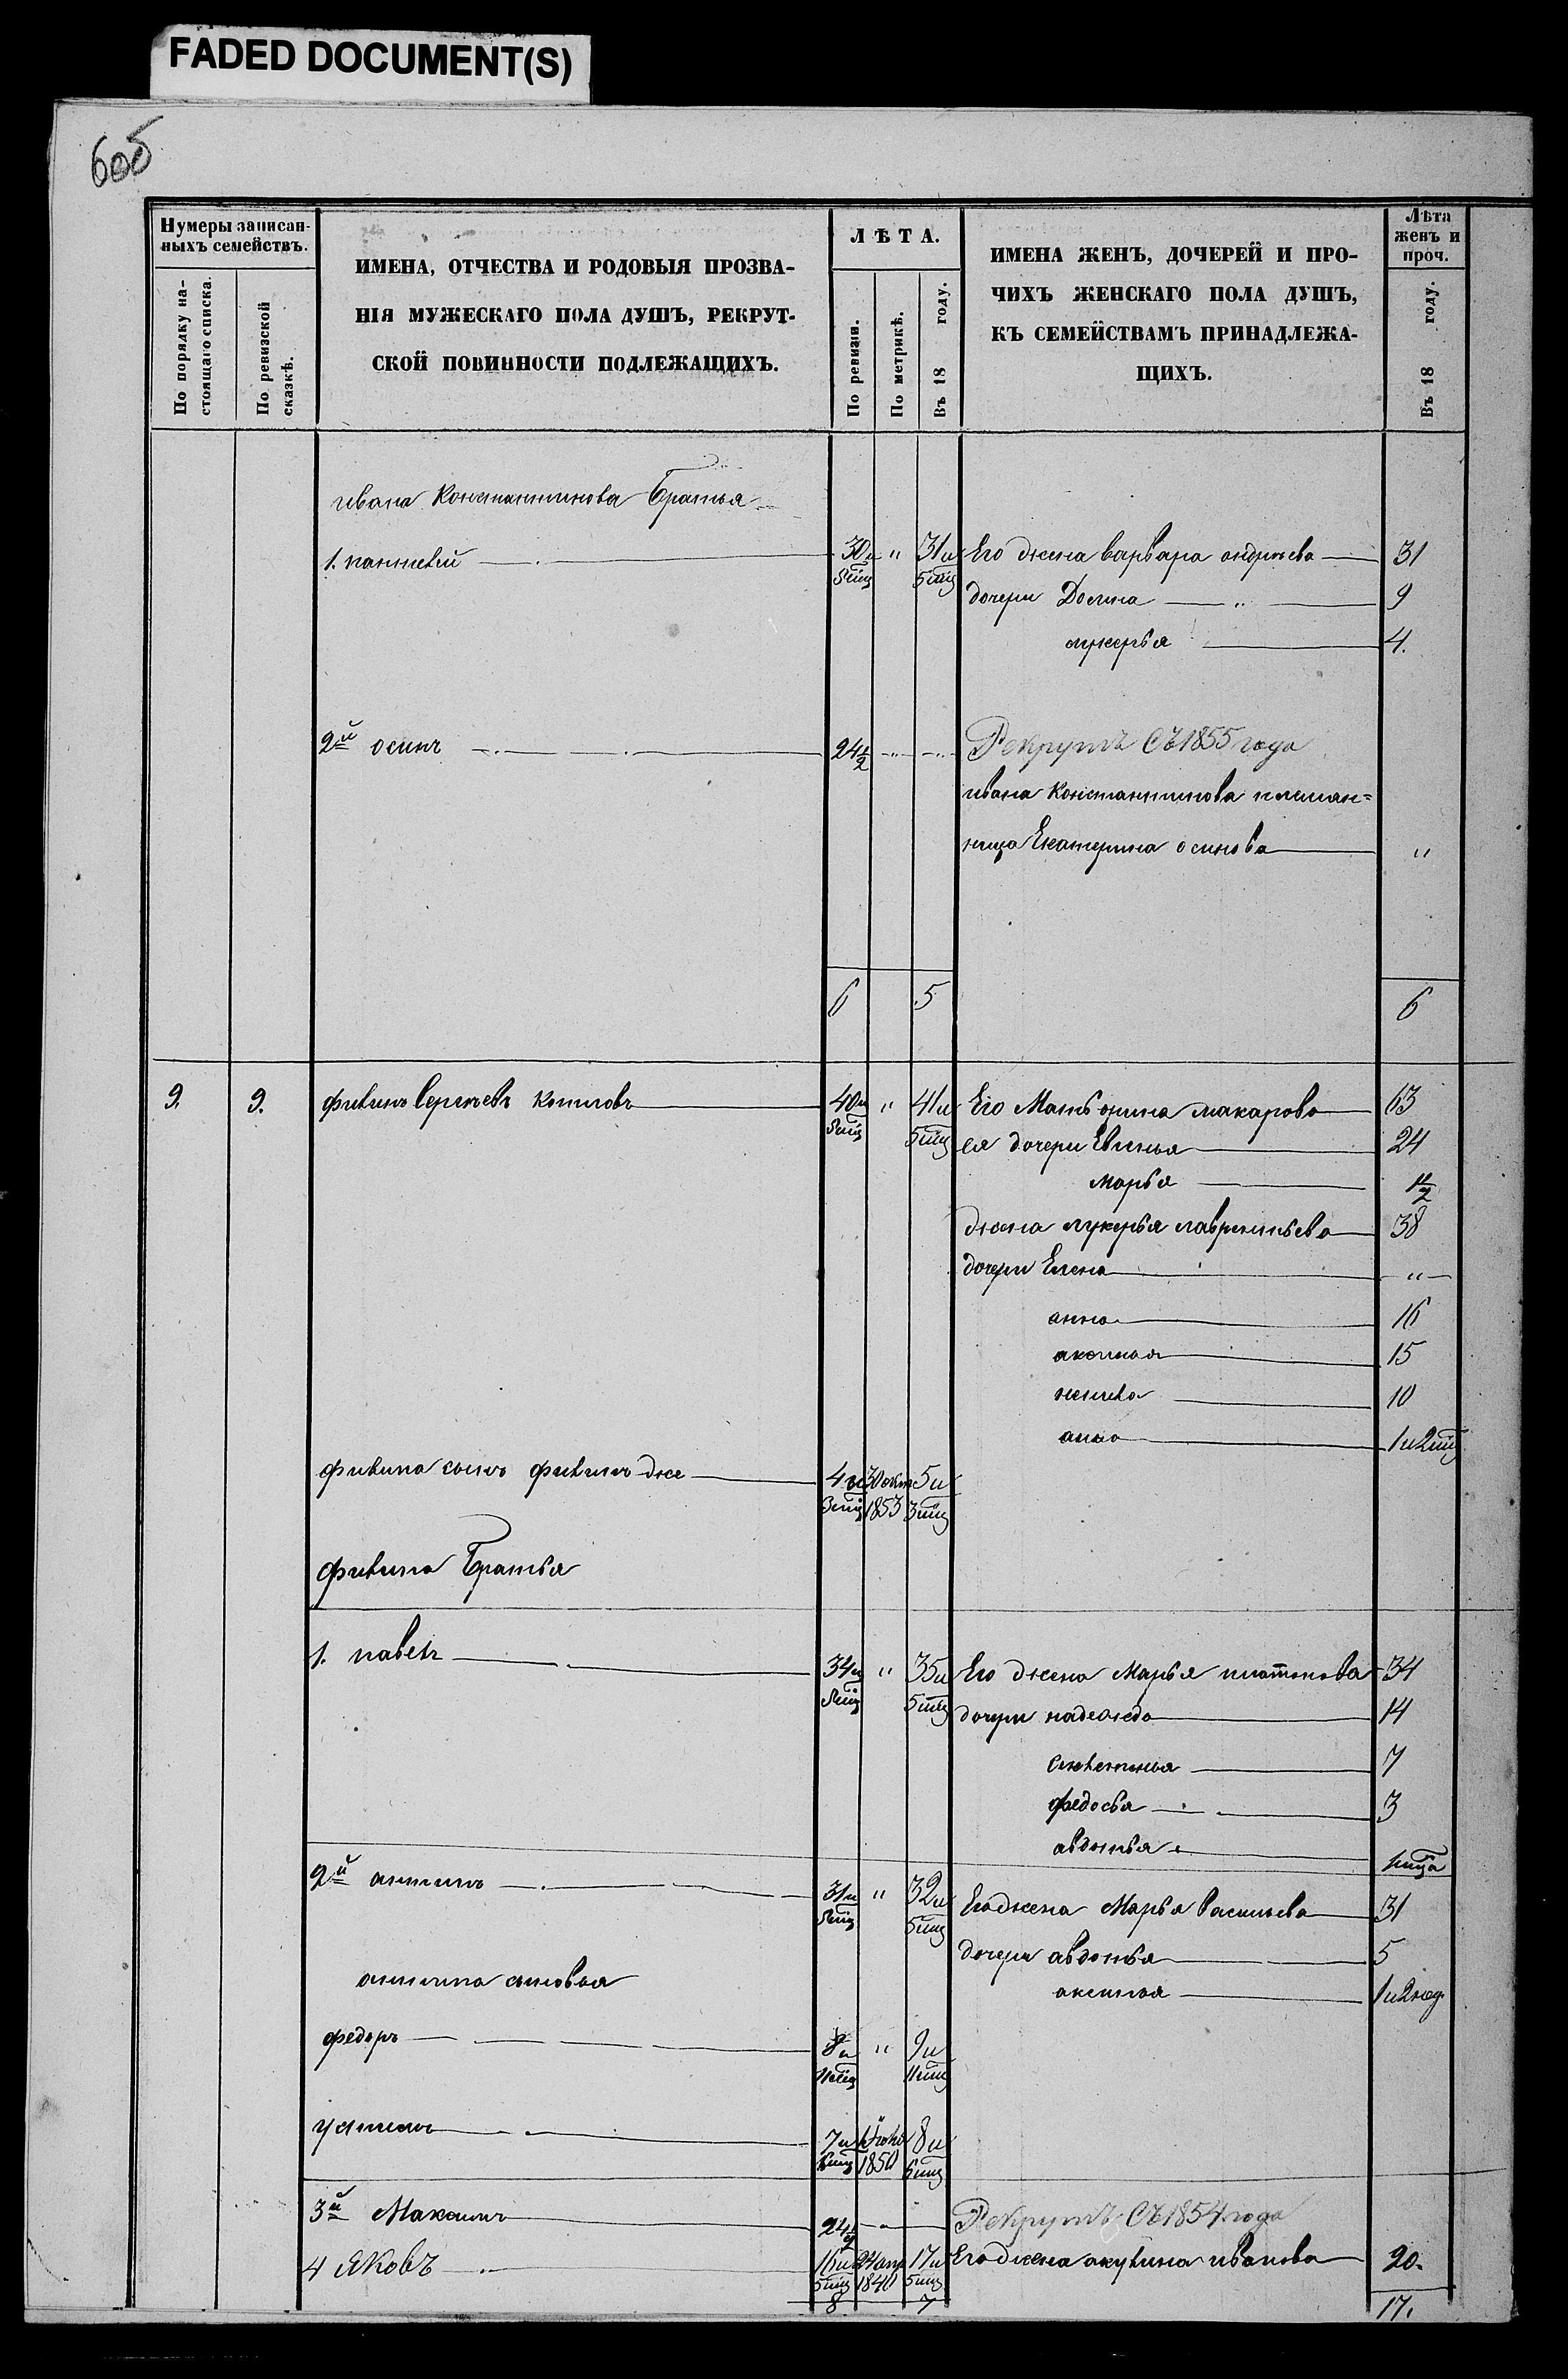 FADED DOCUMENT(S)
605
Нумеры записанныхъ семействъ.
По порядку настоящаго списка.
По ревизской сказкѣ.
ИМЕНА, ОТЧЕСТВА И РОДОВЫЯ ПРОЗВА-
НІЯ МУЖЕСКАГО ПОЛА ДУШЪ, РЕКРУТ-
СКОЙ ПОВИННОСТИ ПОДЛЕЖАЩИХЪ.
ЛѢТА.
По ревизіи.
По метрикѣ.
Въ 18 году.
ИМЕНА ЖЕНЪ, ДОЧЕРЕЙ И ПРО-
ЧИХЪ ЖЕНСКАГО ПОЛА ДУШЪ,
КЪ СЕМЕЙСТВАМЪ ПРИНАДЛЕЖА-
ЩИХЪ.
Лѣта
женъ и
проч.
Въ 18 году.
ивана Константинова Братья
1. пантелей 30 и 5 мц " 31 и 5 мц Его жена варвара андреева 31
дочери Домна " 9
лукерья 4.
2й осипъ 24½ " " Рекрутъ Съ 1855 года
ивана Константинова племян=
ница Екатерина осипова "
6 5 6
9. 9. филипъ сергеевъ 40 и 5 мц " 41 и 5 мц Его Мать макарова 63
ея дочери Евгенья 24
марья ½
жена лукерья лаврентьева 38
дочери Елена "
анна 16
15
10
анна 1 и 2 мц
филипа сынъ филипъ же 4 и 3 мц 30 окт 1853 5 и 3 мц
филипа Братья
1. павелъ 34 и 5 мц " 35 и 5 мц Его жена Марья платонова 34
дочери надежда 14
7
федосья 3
авдотья
2й антипъ 31 и 5 мц " 32 и 5 мц Его жена Марья васильева 31
дочери авдотья 5
антипа сыновья
аксинья 1 и 2 нед
федоръ 8 и 11 мц " 9 и 11 мц
устинъ 7 и 6 мц 1850 8 и 6 мц
3й Максимъ 24½ Рекрутъ Съ 1854 года
4 Яковъ 16 и 5 мц 24 апр 1840 17 и 5 мц Его жена акулина иванова 20.
8 7 17.